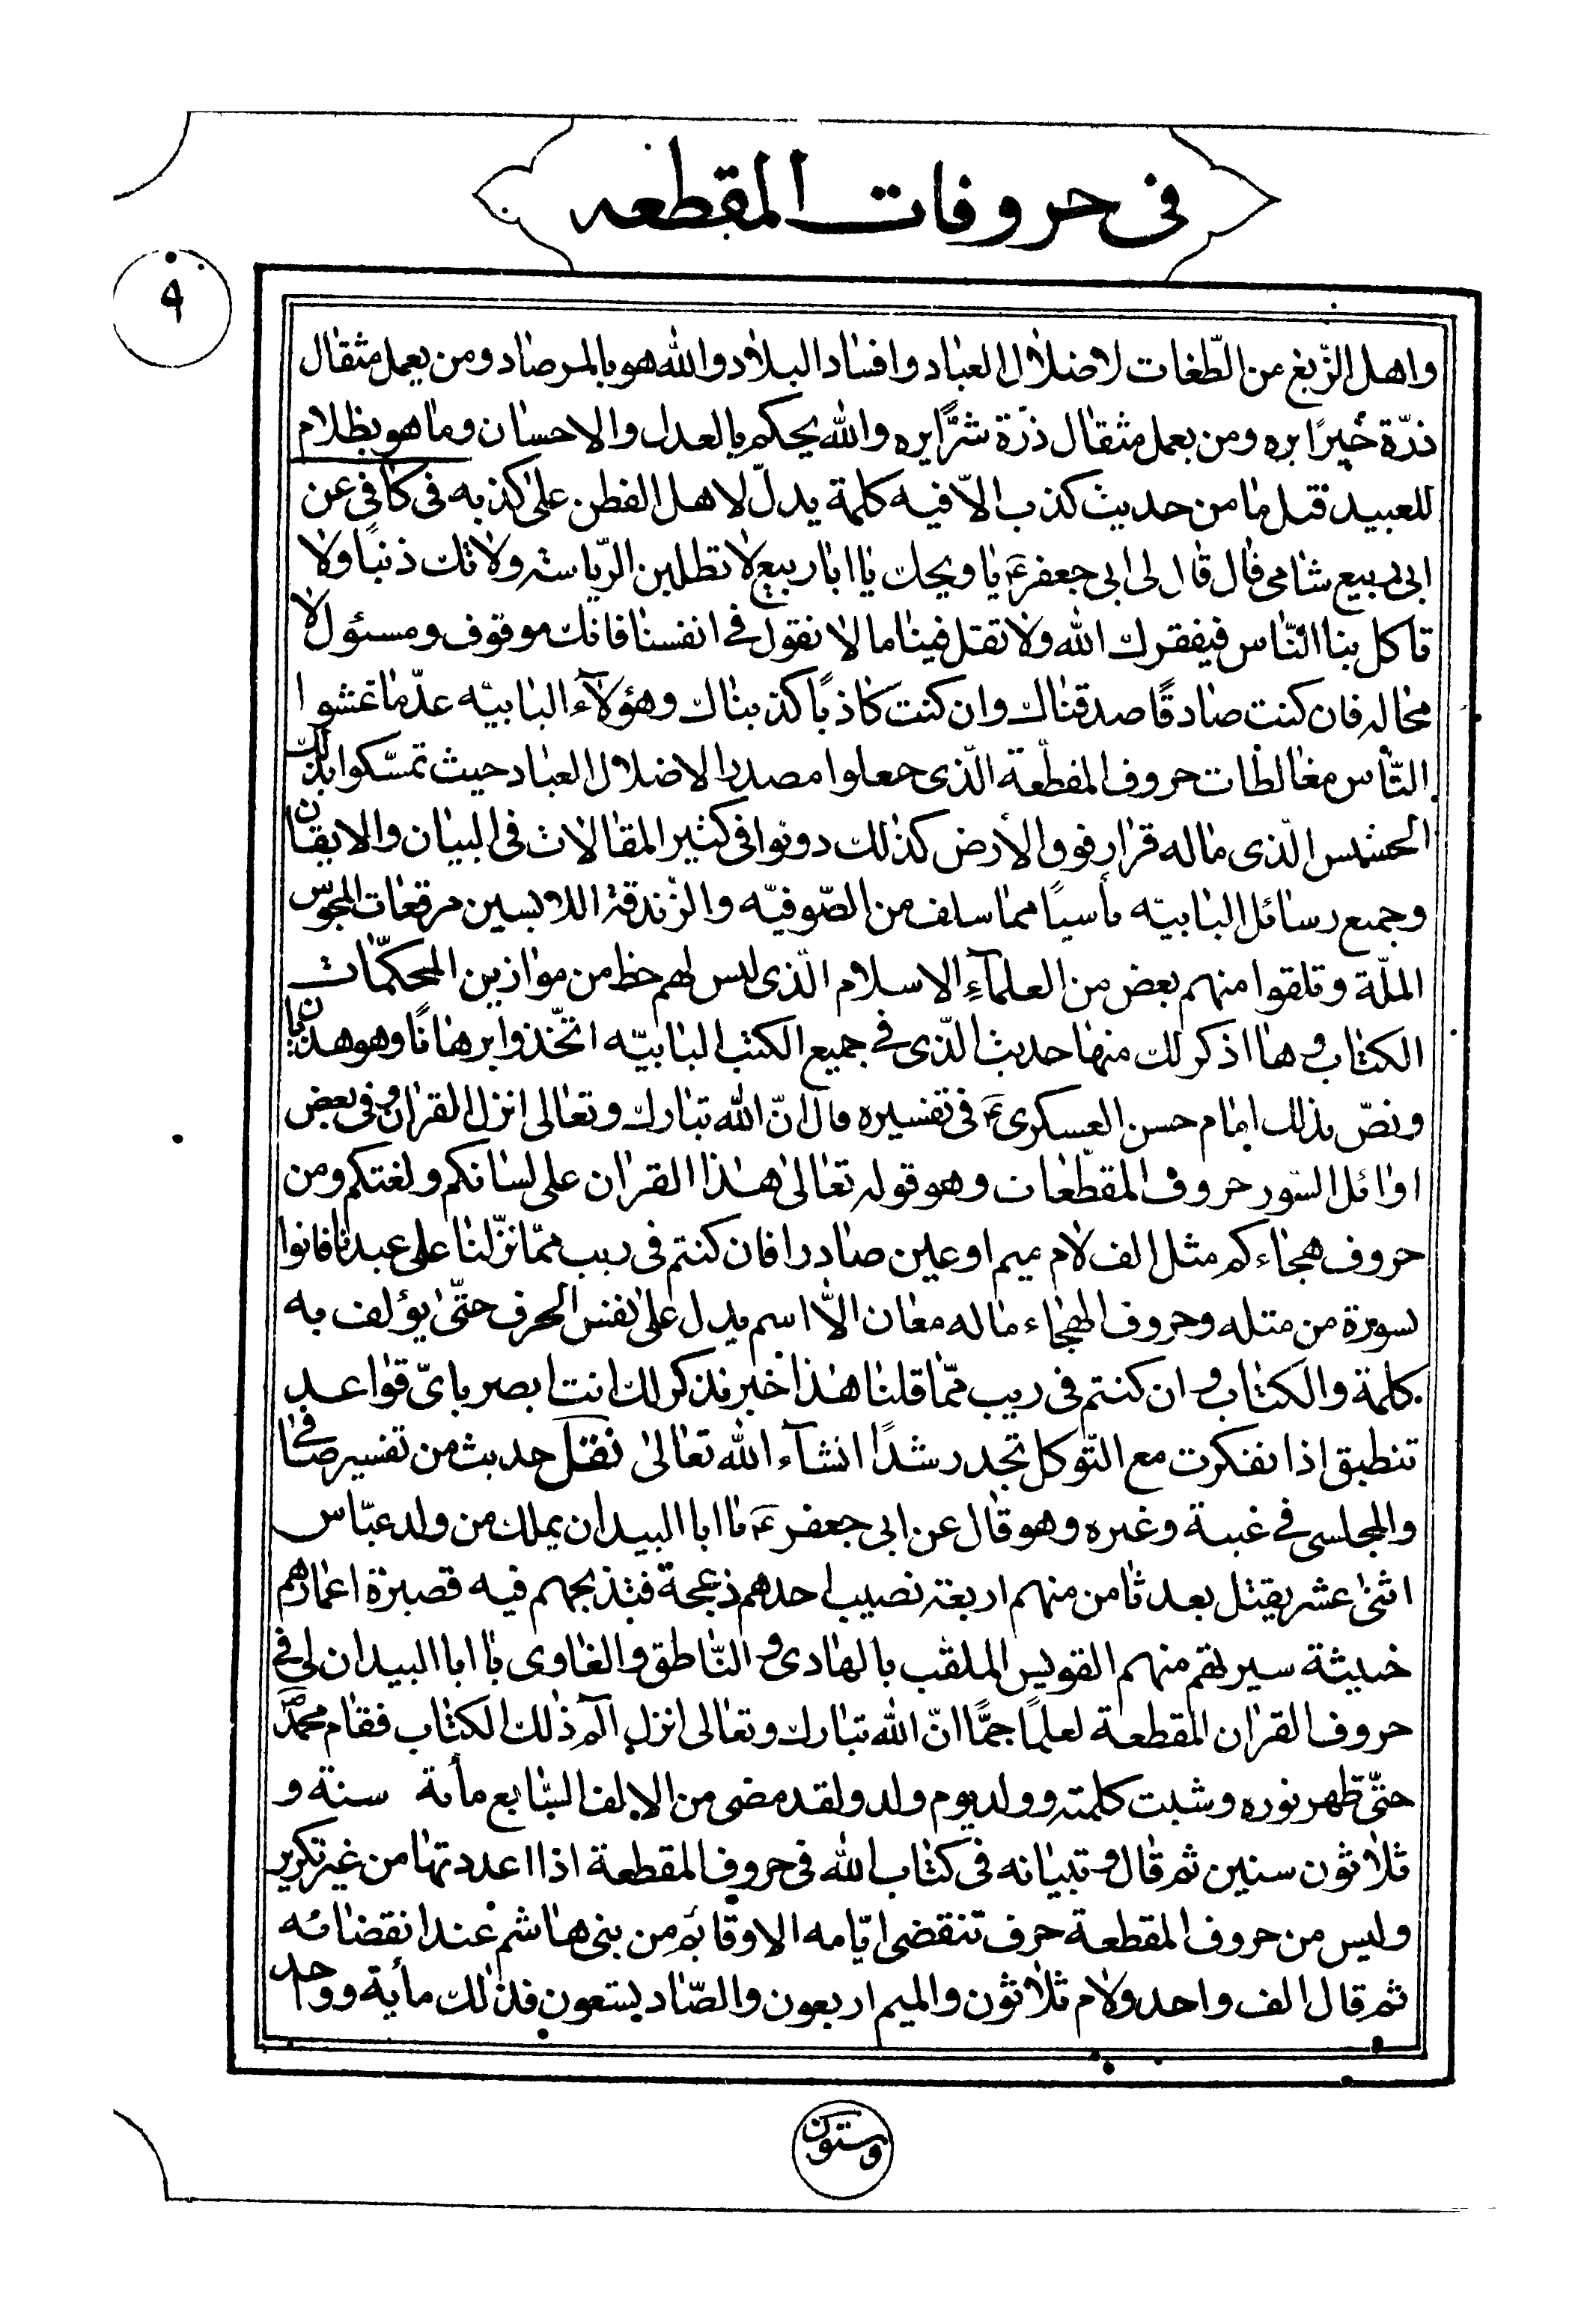 فى حروفات المقطعه
٩
واهل الزّيغ من الطّغات لاضلال العباد وافساد البلاد والله هو بالمرصاد ومن يعمل مثقال
ذرّة خيرًا يره ومن يعمل مثقال ذرّة شرًّا يره والله يحكم بالعدل والاحسان وما هو بظلام
للعبيد قتل ما من حديث كذب الاّ فيه كلمة يدلّ لاهل الفطن على كذبه فى كافى عن
ابى ربيع شامى قال قال لى ابى جعفر ع يا ويحك يا ابا ربيع لا تطلبن الرّياسته ولا تك ذنبًا ولا
تاكل بنا النّاس فيفقرك الله ولا تقل فينا ما لا نقول فى انفسنا فانك موقوف ومسئول لا
محاله فان كنت صادقًا صدقناك وان كنت كاذبًا كذبناك وهؤلآء البابيّه عدّ ما غشوا
النّاس مغالطات حروف المقطّعة الّذى جعلوا مصدرا لاضلال العباد حيث تمسّكوا بذلك
الحشيش الّذى ماله قرار فوق الأرض كذلك دونوا فى كثير المقالات فى البيان والايقان
وجميع رسائل البابيّه تأسيًا مما سلف من الصّوفيّه والزّندقة اللابسين مرقعات المجوس
الملّة وتلقوا منهم بعض من العلمآء الاسلام الّذى ليس لهم حظ من موازين المحكمّات
الكتاب وها اذكر لك منها حديث الّذى فى جميع الكتب البابيّه اتخّذوا برهانًا وهو هذيان
ونصّ بذلك امام حسن العسكرى ع فى تفسيره قال انّ الله تبارك وتعالى انزل القران وفى بعض
اوائل السّور حروف المقطّعات وهو قوله تعالى هذا القران على لسانكم ولغتكم ومن
حروف هجاءكم مثل الف لام ميم او عين صاد را فان كنتم فى ريب ممّا نزّلنا على عبدنا فاتوا
بسورة من مثله وحروف الهجاء ماله معان الاّ اسم يدل على نفس الحرف حتّى يؤلف به
كلمة والكتاب وان كنتم فى ريب ممّا قلنا هذا خبر نذكر لك انت ابصر باىّ قواعد
تنطبق اذا تفكرت مع التّوكل تجد رشدًا انشآء الله تعالى نقل حديث من تفسير صافى
والمجلسى فى غيبة وغيره وهو قال عن ابى جعفر ع يا ابا البيد ان يملك من ولد عبّاس
اثنى عشر يقتل بعد ثامن منهم اربعته نصيب احدهم ذعجة فتذبحهم فيه قصيرة اعمارهم
خبيثة سيرتهم منهم القويس الملقب بالهادى والنّاطق والغاوى يا ابا البيد ان لى فى
حروف القران المقطعة لعلمًا جمًّا انّ الله تبارك وتعالى انزل الٓم ذلك الكتاب فقام محمّد
حتّى ظهر نوره وشبت كلمته وولد يوم ولد ولقد مضى من الالف السّابع مأة سنة و
ثلاثون سنين ثم قال وتبيانه فى كتاب الله فى حروف المقطعة اذا اعددتها من غير تكرير
وليس من حروف المقطعة حرف تنقضى ايّامه الا وقائم من بنى هاشم عند انقضائه
ثم قال الف واحد ولام ثلاثون والميم اربعون والصّاد يستعون فذلك مأية وواحد
وستون